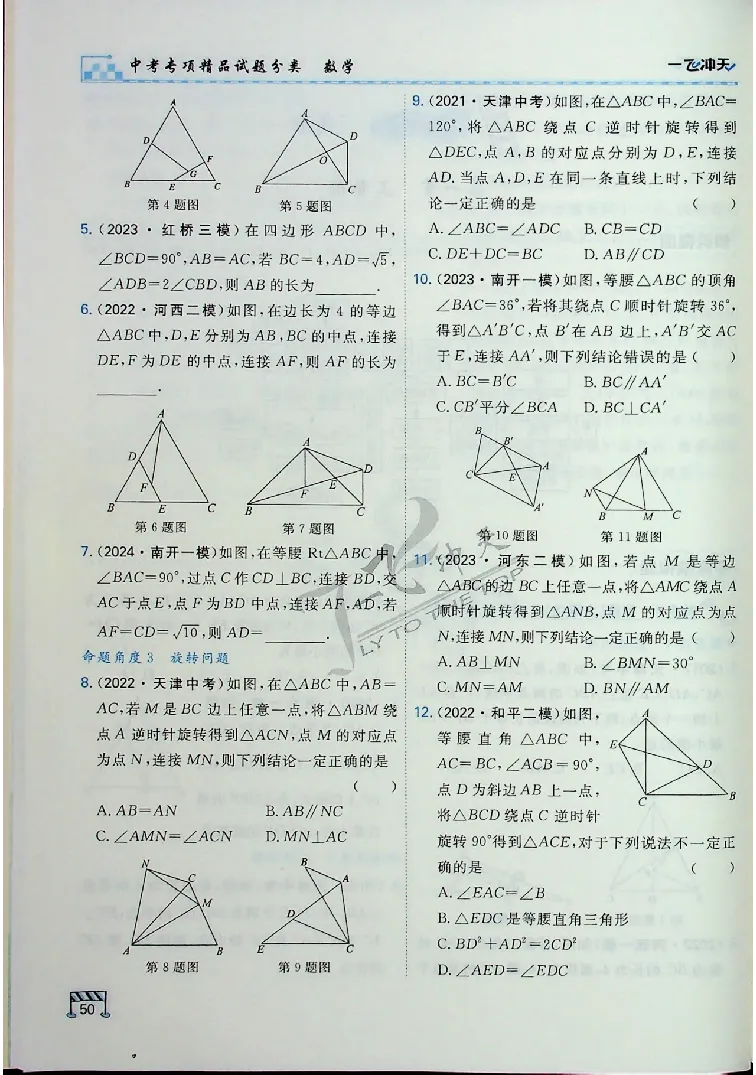 中考专项精品试题分类 数学
一飞冲天
A
D
F
G
B
E
C
第4题图
A
D
O
B
C
第5题图
5.(2023·红桥三模)在四边形ABCD中,
∠BCD=90°,AB=AC,若BC=4,AD=√5,
∠ADB=2∠CBD,则AB的长为________.
6.(2022·河西二模)如图,在边长为4的等边
△ABC中,D,E分别为AB,BC的中点,连接
DE,F为DE的中点,连接AF,则AF的长为
________.
A
D
F
B
E
C
第6题图
A
D
E
F
B
C
第7题图
7.(2024·南开一模)如图,在等腰Rt△ABC中,
∠BAC=90°,过点C作CD⊥BC,连接BD,交
AC于点E,点F为BD中点,连接AF,AD,若
AF=CD=√10,则AD=________.
命题角度3 旋转问题
8.(2022·天津中考)如图,在△ABC中,AB=
AC,若M是BC边上任意一点,将△ABM绕
点A逆时针旋转得到△ACN,点M的对应点
为点N,连接MN,则下列结论一定正确的是
( )
A. AB=AN B. AB∥NC
C. ∠AMN=∠ACN D. MN⊥AC
N
C
M
A
B
第8题图
B
A
D
E
C
第9题图
50
9.(2021·天津中考)如图,在△ABC中,∠BAC=
120°,将△ABC绕点C逆时针旋转得到
△DEC,点A,B的对应点分别为D,E,连接
AD.当点A,D,E在同一条直线上时,下列结
论一定正确的是 ( )
A. ∠ABC=∠ADC B. CB=CD
C. DE+DC=BC D. AB∥CD
10.(2023·南开一模)如图,等腰△ABC的顶角
∠BAC=36°,若将其绕点C顺时针旋转36°,
得到△A′B′C,点B′在AB边上,A′B′交AC
于E,连接AA′,则下列结论错误的是( )
A. BC=B′C B. BC∥AA′
C. CB′平分∠BCA D. BC⊥CA′
B
B′
C
E
A
A′
第10题图
A
N
B
M
C
第11题图
11.(2023·河东二模)如图,若点M是等边
△ABC的边BC上任意一点,将△AMC绕点A
顺时针旋转得到△ANB,点M的对应点为点
N,连接MN,则下列结论一定正确的是( )
A. AB⊥MN B. ∠BMN=30°
C. MN=AM D. BN∥AM
12.(2022·和平二模)如图,
等腰直角△ABC中,
AC=BC,∠ACB=90°,
点D为斜边AB上一点,
将△BCD绕点C逆时针
旋转90°得到△ACE,对于下列说法不一定正
确的是 ( )
A
E
D
C
B
A. ∠EAC=∠B
B. △EDC是等腰直角三角形
C. BD²+AD²=2CD²
D. ∠AED=∠EDC
飞冲天
FLY TO THE TOP